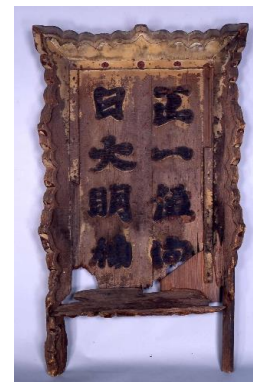 正一位向
日大明神